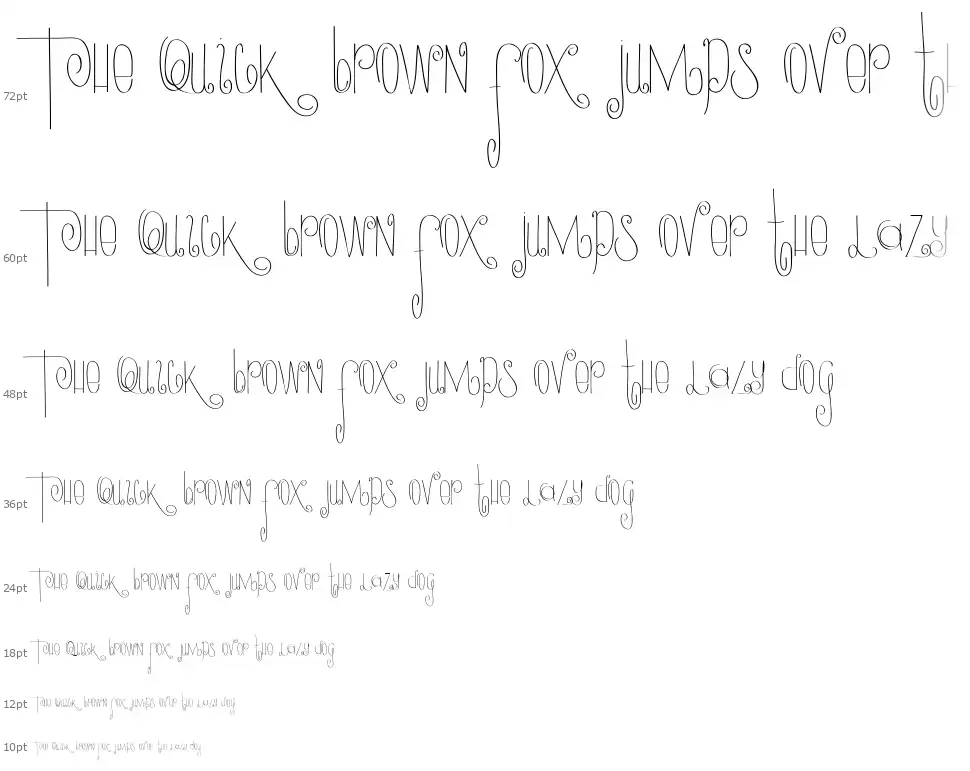 72pt The quick brown fox jumps over th
60pt The quick brown fox jumps over the lazy
48pt The quick brown fox jumps over the lazy dog
36pt The quick brown fox jumps over the lazy dog
24pt The quick brown fox jumps over the lazy dog
18pt The quick brown fox jumps over the lazy dog
12pt The quick brown fox jumps over the lazy dog
10pt The quick brown fox jumps over the lazy dog